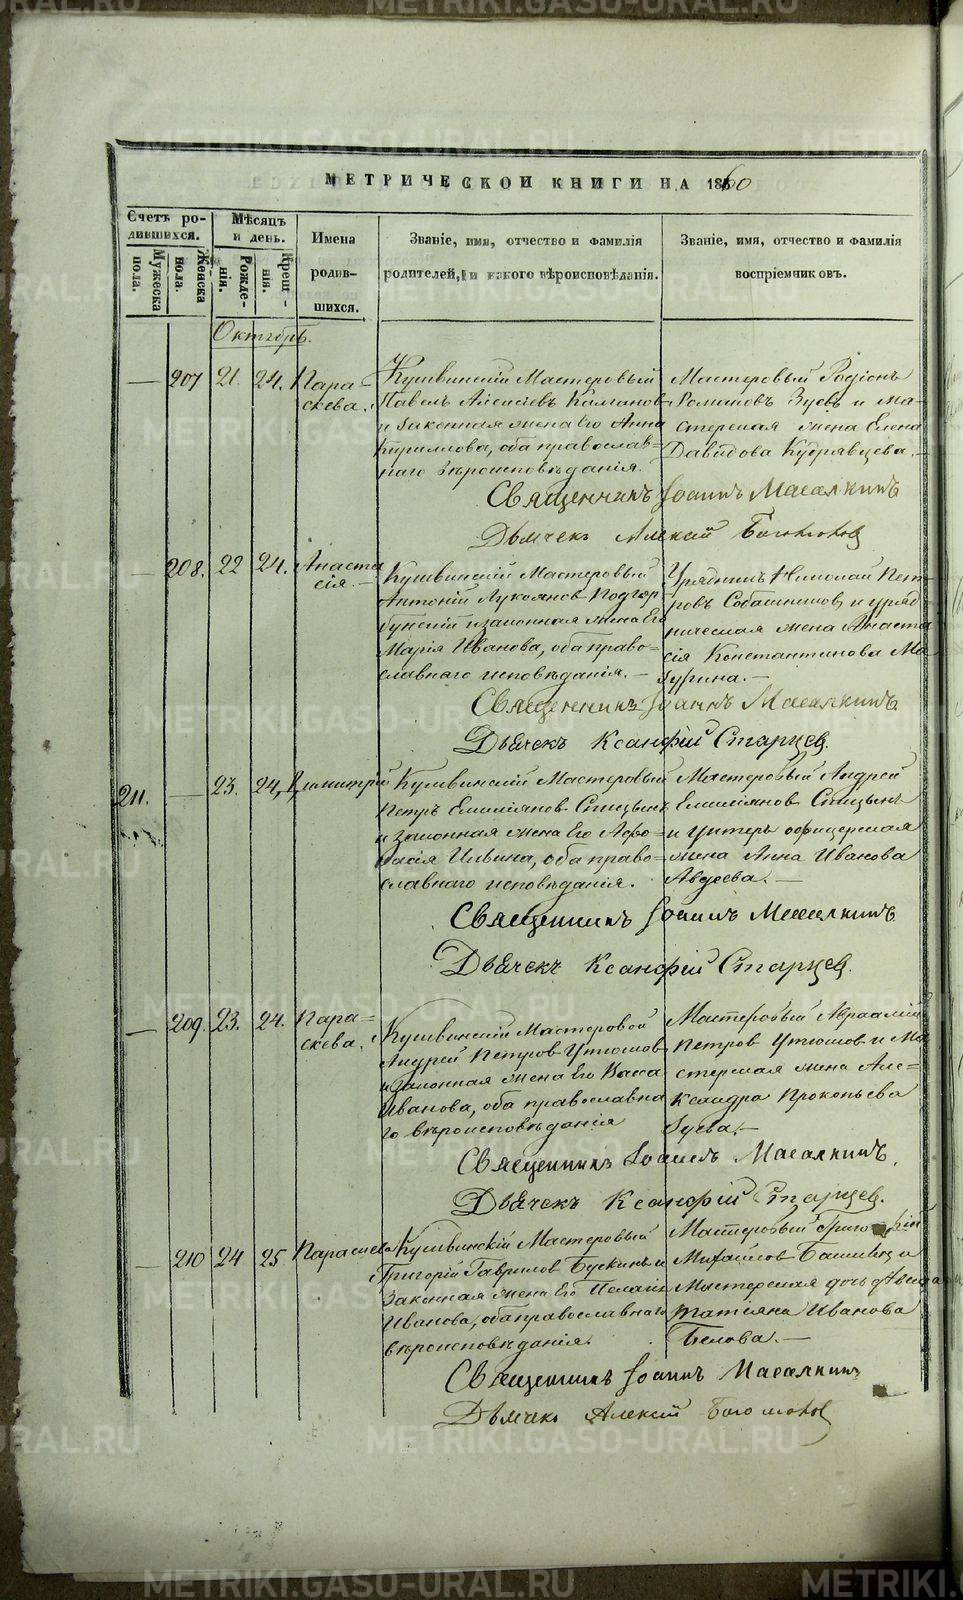 МЕТРИЧЕСКОЙ КНИГИ НА 1860
Счетъ ро-
дившихся.
Мужеска
пола.
Женска
пола.
Мѣсяцъ
и день.
Рожде-
нія.
Креще-
нія.
Имена
родив-
шихся.
Званіе, имя, отчество и фамилія
родителей, и какого вѣроисповѣданія.
Званіе, имя, отчество и фамилія
воспріемниковъ.
Октябрь.
— 207 21. 24. Пара-
скева.
Кушвинскій Мастеровый
Павелъ Алексѣевъ
и законная жена Его Анна
Кирилова, оба православ-
наго Вѣроисповѣданія.
Мастеровый Родіонъ
Романовъ Зуевъ и ма-
стерская жена Елена
Давыдова Кудрявцева.
Священникъ Іоаннъ Масалкинъ
Дьячекъ Алексій Богомоловъ
— 208. 22 24. Анаста
сія.
Кушвинскій Мастеровый
Антоній Лукояновъ Подгор-
бунскій и законная жена Его
Марія Иванова, оба право-
славнаго исповѣданія. —
Урядникъ Николай Пет-
ровъ Собашниковъ и уряд-
ническая жена Анаста
сія Константинова Ма-
зурина. —
Священникъ Іоаннъ Масалкинъ
Дьячекъ Ксанфій Старцев.
211. — 23. 24. Димитрій
Кушвинскій Мастеровый
Петръ Емиліяновъ Спицынъ
и законная жена Его Афо-
насія Ильина, оба право-
славнаго исповѣданія.
Мастеровый Андрей
Емиліянов Спицынъ
и Унтеръ офицерская
жена Анна Иванова
Авдеева. —
Священникъ Іоаннъ Масалкинъ
Дьячекъ Ксанфій Старцев.
— 209. 23. 24. Пара-
скева.
Кушвинскій Мастеровой
Андрей Петров Утюмов
и законная жена Его Васса
Иванова, оба православна
го вѣроисповѣданія
Мастеровый Авраамій
Петров Утюмов и Ма-
стерская жена Але-
ксандра Прокопьева
Зуева. —
Священникъ Іоаннъ Масалкинъ.
Дьячекъ Ксанфій Старцев.
— 210 24 25 Параскева
Кушвинскій Мастеровый
Григорій Гаврилов Бускинъ и
Законная жена Его Пелагія
Иванова, оба православнаго
вѣроисповѣданія.
Мастеровый Григорій
Михайлов и
Мастерская дочь девица
Татьяна Иванова
Белова. —
Священникъ Іоаннъ Масалкинъ
Дьячекъ Алексій Богомолов
METRIKI.GASO-URAL.RU